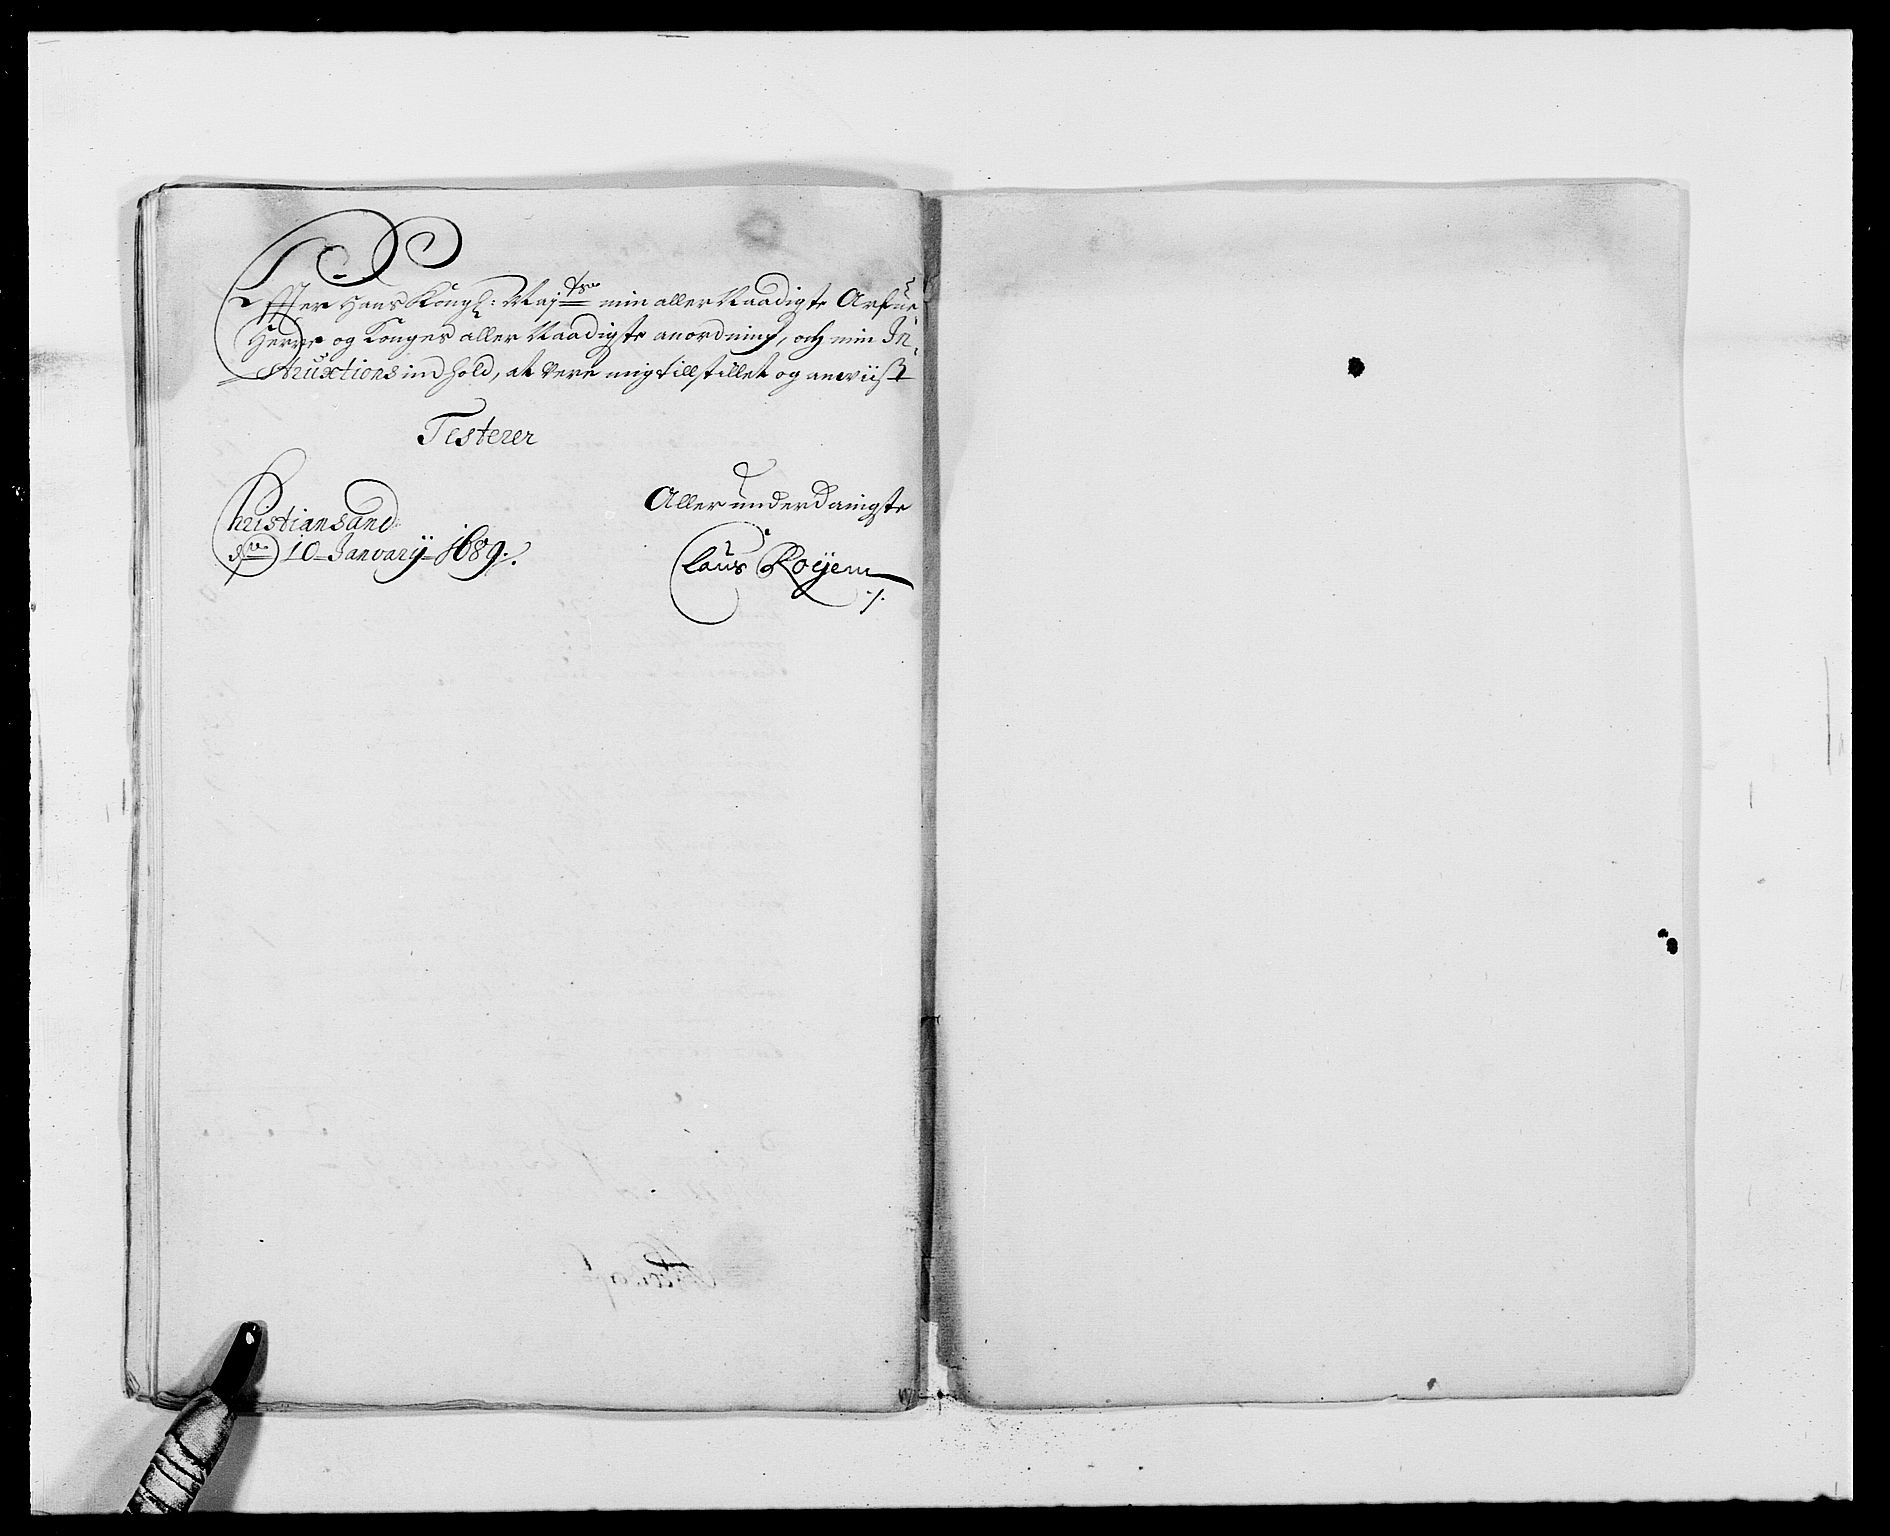 Effter Hans Kongl: Maj:ts min aller Naadigste Arfue
Herre og Konges aller Naadigste anordning, och min In-
struxtions indhold, at vere mig tillstillet og anwiist
Testerer
Christiansand
den 10 January 1689.
Aller underdanigste
Claus Röyem